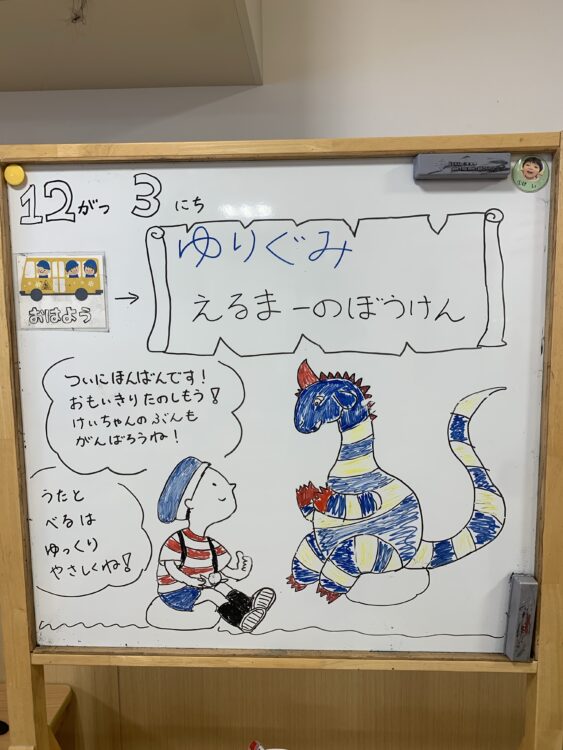 12がつ 3にち
おはよう
→
ゆりぐみ
えるまーのぼうけん
ついにほんばんです！
おもいきりたのしもう！
けいちゃんのぶんも
がんばろうね！
うたと
べるは
ゆっくり
やさしくね！